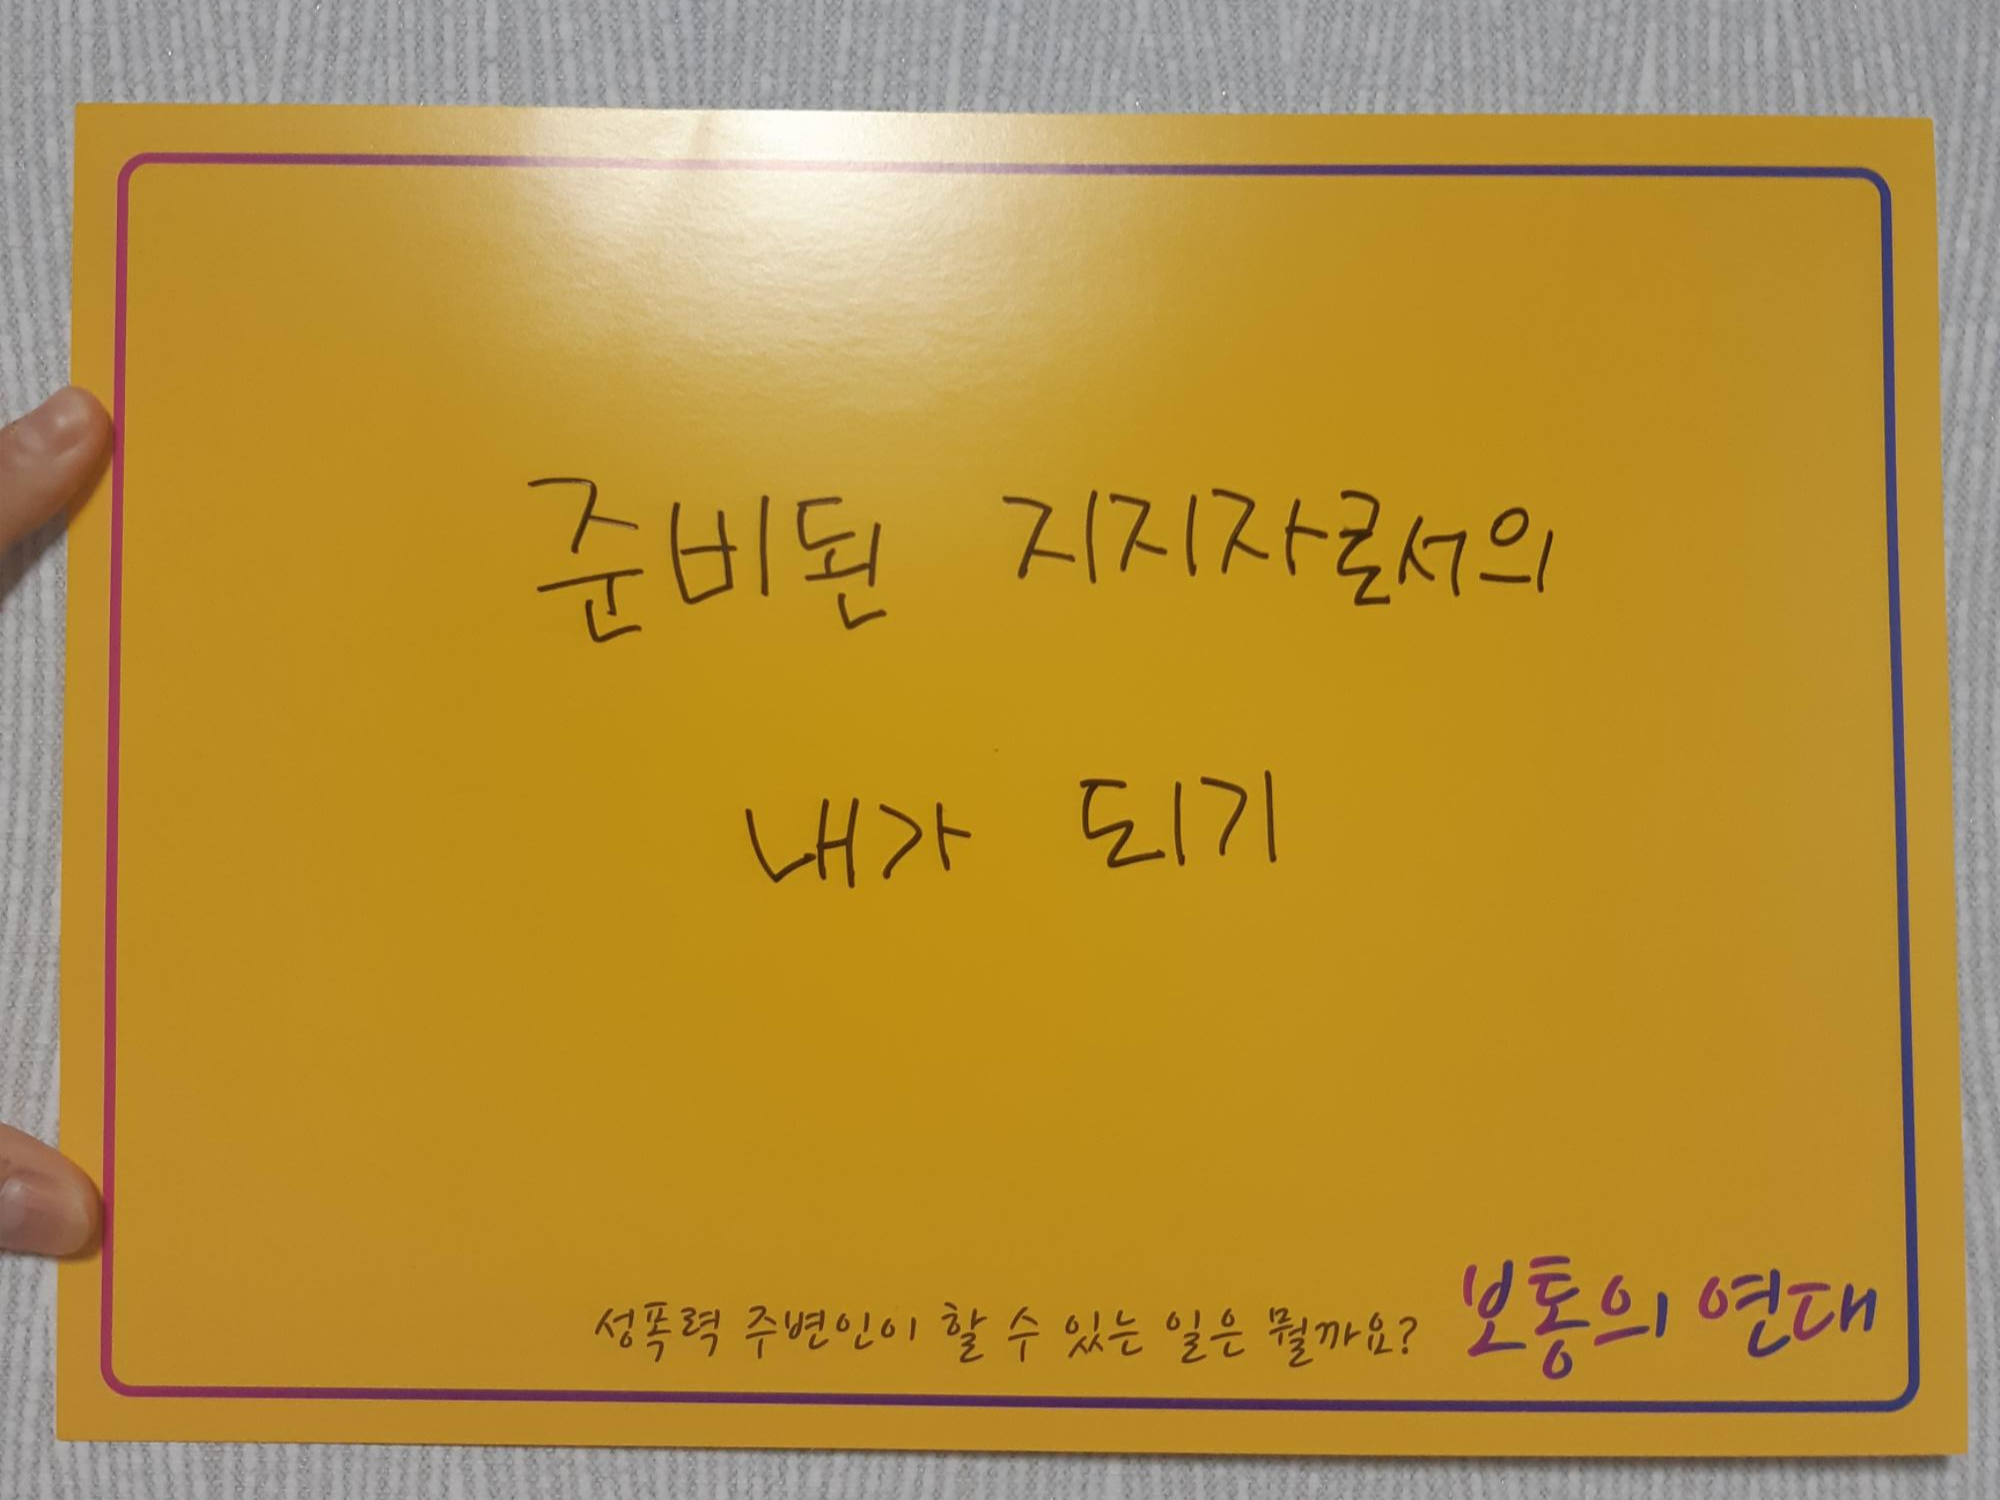 준비된 지지자로서의
내가 되기
성폭력 주변인이 할 수 있는 일은 뭘까요? 보통의 연대